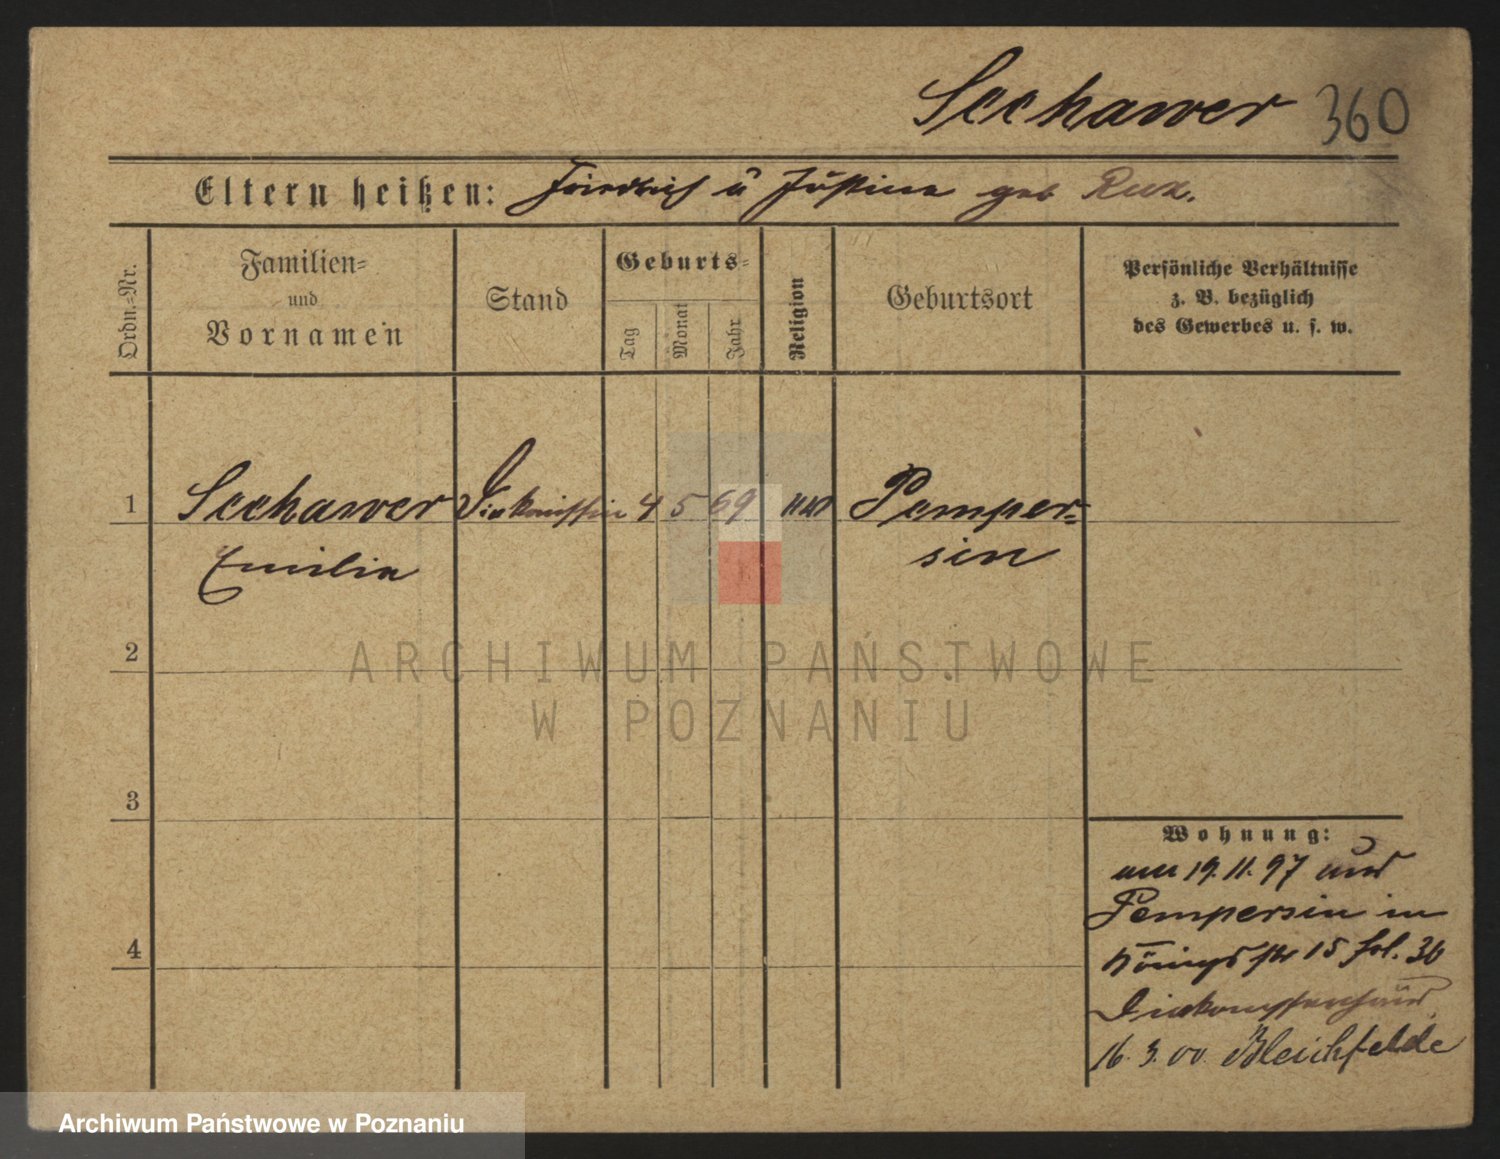 Seehawer 360
Eltern heißen: Friedrich ü Justine geb Rux.
Ordn.=Nr.
Familien=
und
Vornamen
Stand
Geburts=
Tag
Monat
Jahr
Religion
Geburtsort
Persönliche Verhältnisse
z. B. bezüglich
des Gewerbes u. s. w.
1 Seehawer Diakonissin 4 5 69 Pemper=
Emilie sin
2
ARCHIWUM PAŃSTWOWE
W POZNANIU
3
4
Wohnung:
am 19. 11. 97 aus
Pempersin in
Königsstr 15 fol. 36
Diakonissenhaus
16. 3. 00. Bleichfelde
Archiwum Państwowe w Poznaniu